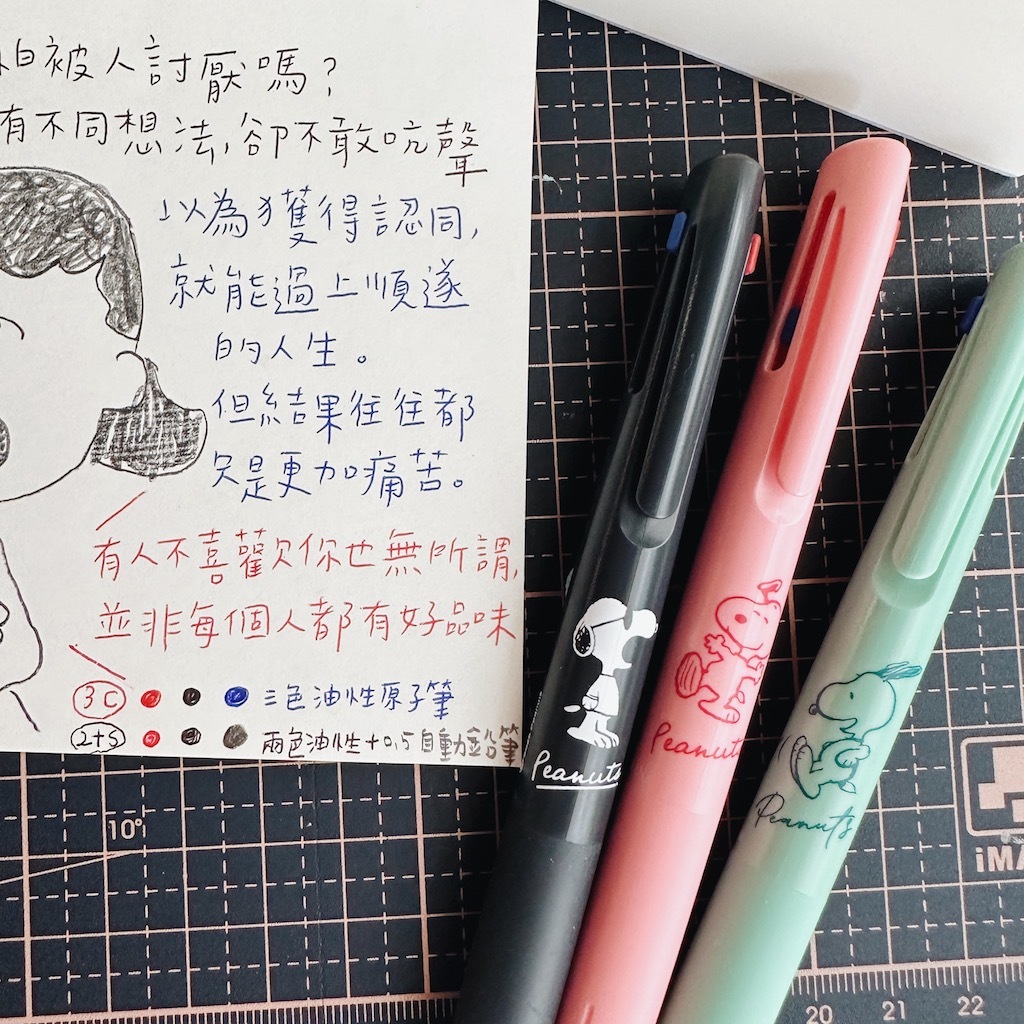 怕被人討厭嗎？
有不同想法，卻不敢吭聲
以為獲得認同，
就能過上順遂
的人生。
但結果往往都
只是更加痛苦。
有人不喜歡你也無所謂，
並非每個人都有好品味
3C 三色油性原子筆
2+S 兩色油性+0.5自動鉛筆
Peanuts
Peanuts
Peanuts
10°
iMA
20 21 22